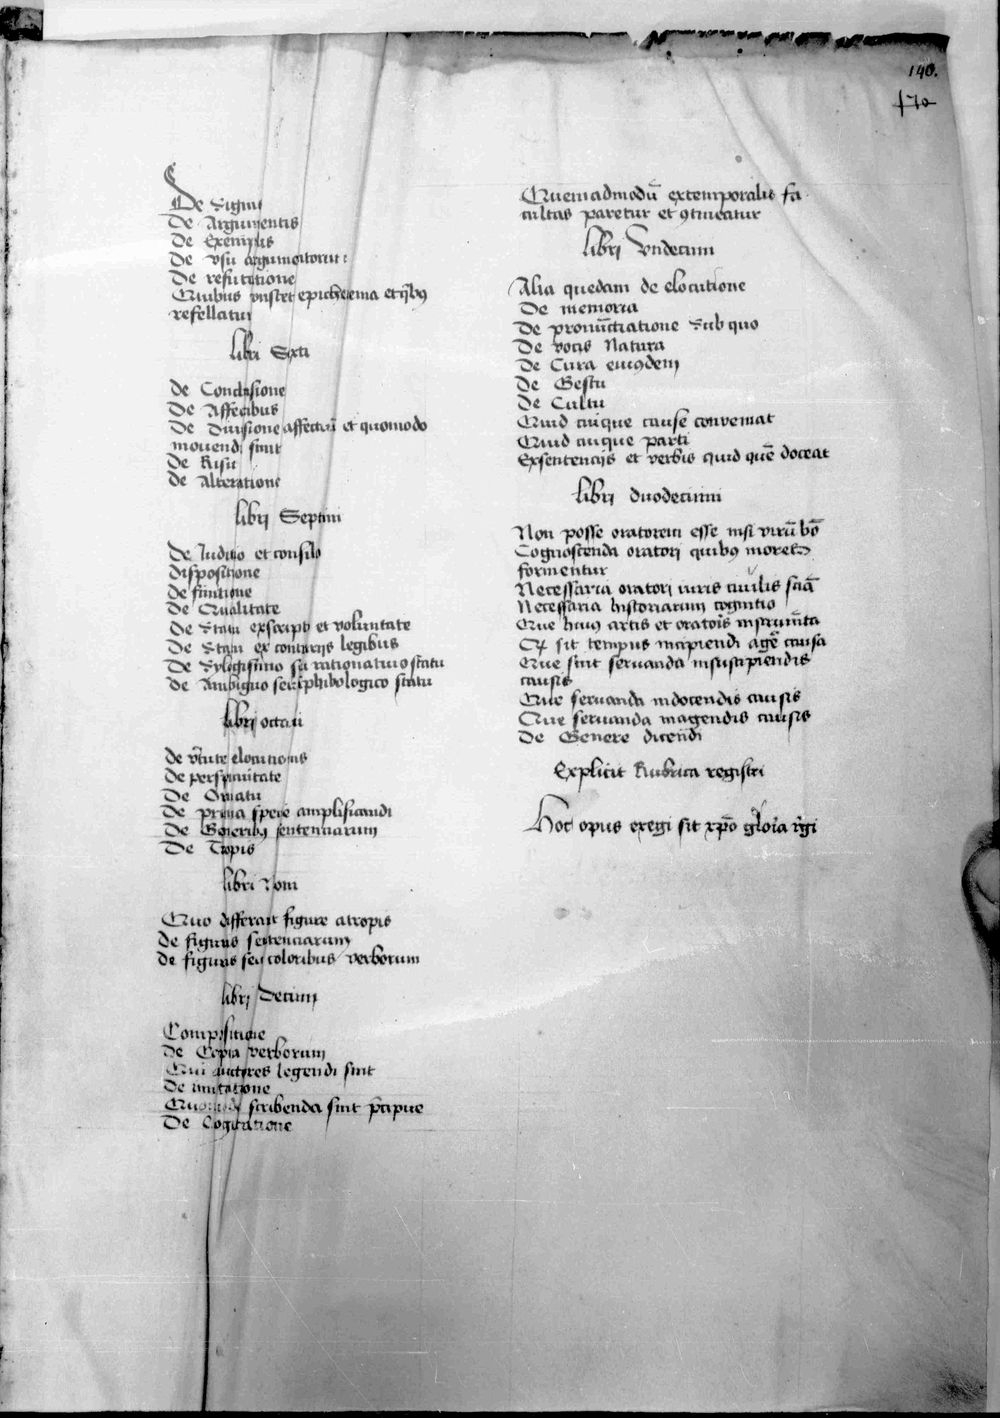 140.
170
De Signis
De Argumentis
De Exemplis
De vsu argumentorum
De refutatione
Quibus constet epicherema et qibꝯ
refellatur
libri Sexti
de Conclusione
De Affectibus
De Diuisione affectuū et quomodo
mouendi sint
de Risu
de Altercatione
libri Septimi
de Iudicio et consilio
dispositione
de finitione
de Qualitate
de Statu exscripti et voluntate
de Statu ex contrarijs legibus
de Sylogismo siue rationatiuo statu
de Ambiguo seu amphibologico statu
libri octaui
de v̄tute elocutionis
de perspicuitate
De Ornatu
de prima specie amplificandi
de Generibꝯ sententiarum
De Tropis
libri Noni
Quo differant figure atropis
de figuris sententiarum
de figuris seu coloribus verborum
libri Decimi
Compositione
de Copia verborum
Qui auctores legendi sint
De imitatione
Quomodo scribenda sint p̄cipue
De Cogitatione
Quemadmodū extemporalis fa
cultas paretur et ꝯtineatur
libri Vndecimi
Alia quedam de elocutione
De memoria
De pronūctiatione Sub quo
De vocis Natura
De Cura eiusdem
de Gestu
de Cultu
Quid cuique cause conueniat
Quid cuique parti
Exsentencijs et verbis quid quē doceat
libri duodecimi
Non posse oratorem esse nisi virū bō
Cognoscenda oratori quibꝯ mores
formentur
Necessaria oratori iuris ciuilis sciā
Necessaria historiarum cognitio
Que huiꝯ artis et oratoris instrumēta
Q sit tempus incipiendi agēd causa
Que sint seruanda insuscipiendis
causis
Que seruanda indocendis causis
Que seruanda inagendis causis
De Genere dicendi
Explicit Rubrica registri
Hoc opus exegi sit xp̄o gloria regi